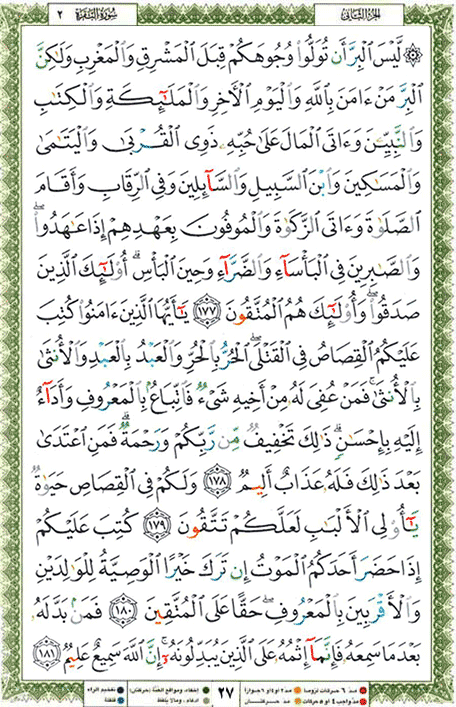 الجزء الثاني
سورة البقرة
٢
لَّيْسَ الْبِرَّ أَن تُوَلُّوا وُجُوهَكُمْ قِبَلَ الْمَشْرِقِ وَالْمَغْرِبِ وَلَٰكِنَّ
الْبِرَّ مَنْ ءَامَنَ بِاللَّهِ وَالْيَوْمِ الْءَاخِرِ وَالْمَلَٰئِكَةِ وَالْكِتَٰبِ
وَالنَّبِيِّنَ وَءَاتَى الْمَالَ عَلَىٰ حُبِّهِ ذَوِي الْقُرْبَىٰ وَالْيَتَٰمَىٰ
وَالْمَسَٰكِينَ وَابْنَ السَّبِيلِ وَالسَّآئِلِينَ وَفِي الرِّقَابِ وَأَقَامَ
الصَّلَوٰةَ وَءَاتَى الزَّكَوٰةَ وَالْمُوفُونَ بِعَهْدِهِمْ إِذَا عَٰهَدُوا ۖ
وَالصَّٰبِرِينَ فِي الْبَأْسَآءِ وَالضَّرَّآءِ وَحِينَ الْبَأْسِ ۗ أُولَٰئِكَ الَّذِينَ
صَدَقُوا ۖ وَأُولَٰئِكَ هُمُ الْمُتَّقُونَ ﴿١٧٧﴾ يَٰٓأَيُّهَا الَّذِينَ ءَامَنُوا كُتِبَ
عَلَيْكُمُ الْقِصَاصُ فِي الْقَتْلَى ۖ الْحُرُّ بِالْحُرِّ وَالْعَبْدُ بِالْعَبْدِ وَالْأُنثَىٰ
بِالْأُنثَىٰ ۚ فَمَنْ عُفِيَ لَهُ مِنْ أَخِيهِ شَيْءٌ فَاتِّبَاعٌ بِالْمَعْرُوفِ وَأَدَآءٌ
إِلَيْهِ بِإِحْسَٰنٍ ۗ ذَٰلِكَ تَخْفِيفٌ مِّن رَّبِّكُمْ وَرَحْمَةٌ ۗ فَمَنِ اعْتَدَىٰ
بَعْدَ ذَٰلِكَ فَلَهُ عَذَابٌ أَلِيمٌ ﴿١٧٨﴾ وَلَكُمْ فِي الْقِصَاصِ حَيَوٰةٌ
يَٰٓأُولِي الْأَلْبَٰبِ لَعَلَّكُمْ تَتَّقُونَ ﴿١٧٩﴾ كُتِبَ عَلَيْكُمْ
إِذَا حَضَرَ أَحَدَكُمُ الْمَوْتُ إِن تَرَكَ خَيْرًا الْوَصِيَّةُ لِلْوَٰلِدَيْنِ
وَالْأَقْرَبِينَ بِالْمَعْرُوفِ ۖ حَقًّا عَلَى الْمُتَّقِينَ ﴿١٨٠﴾ فَمَنۢ بَدَّلَهُ
بَعْدَمَا سَمِعَهُ فَإِنَّمَآ إِثْمُهُ عَلَى الَّذِينَ يُبَدِّلُونَهُ ۚ إِنَّ اللَّهَ سَمِيعٌ عَلِيمٌ ﴿١٨١﴾
٢٧